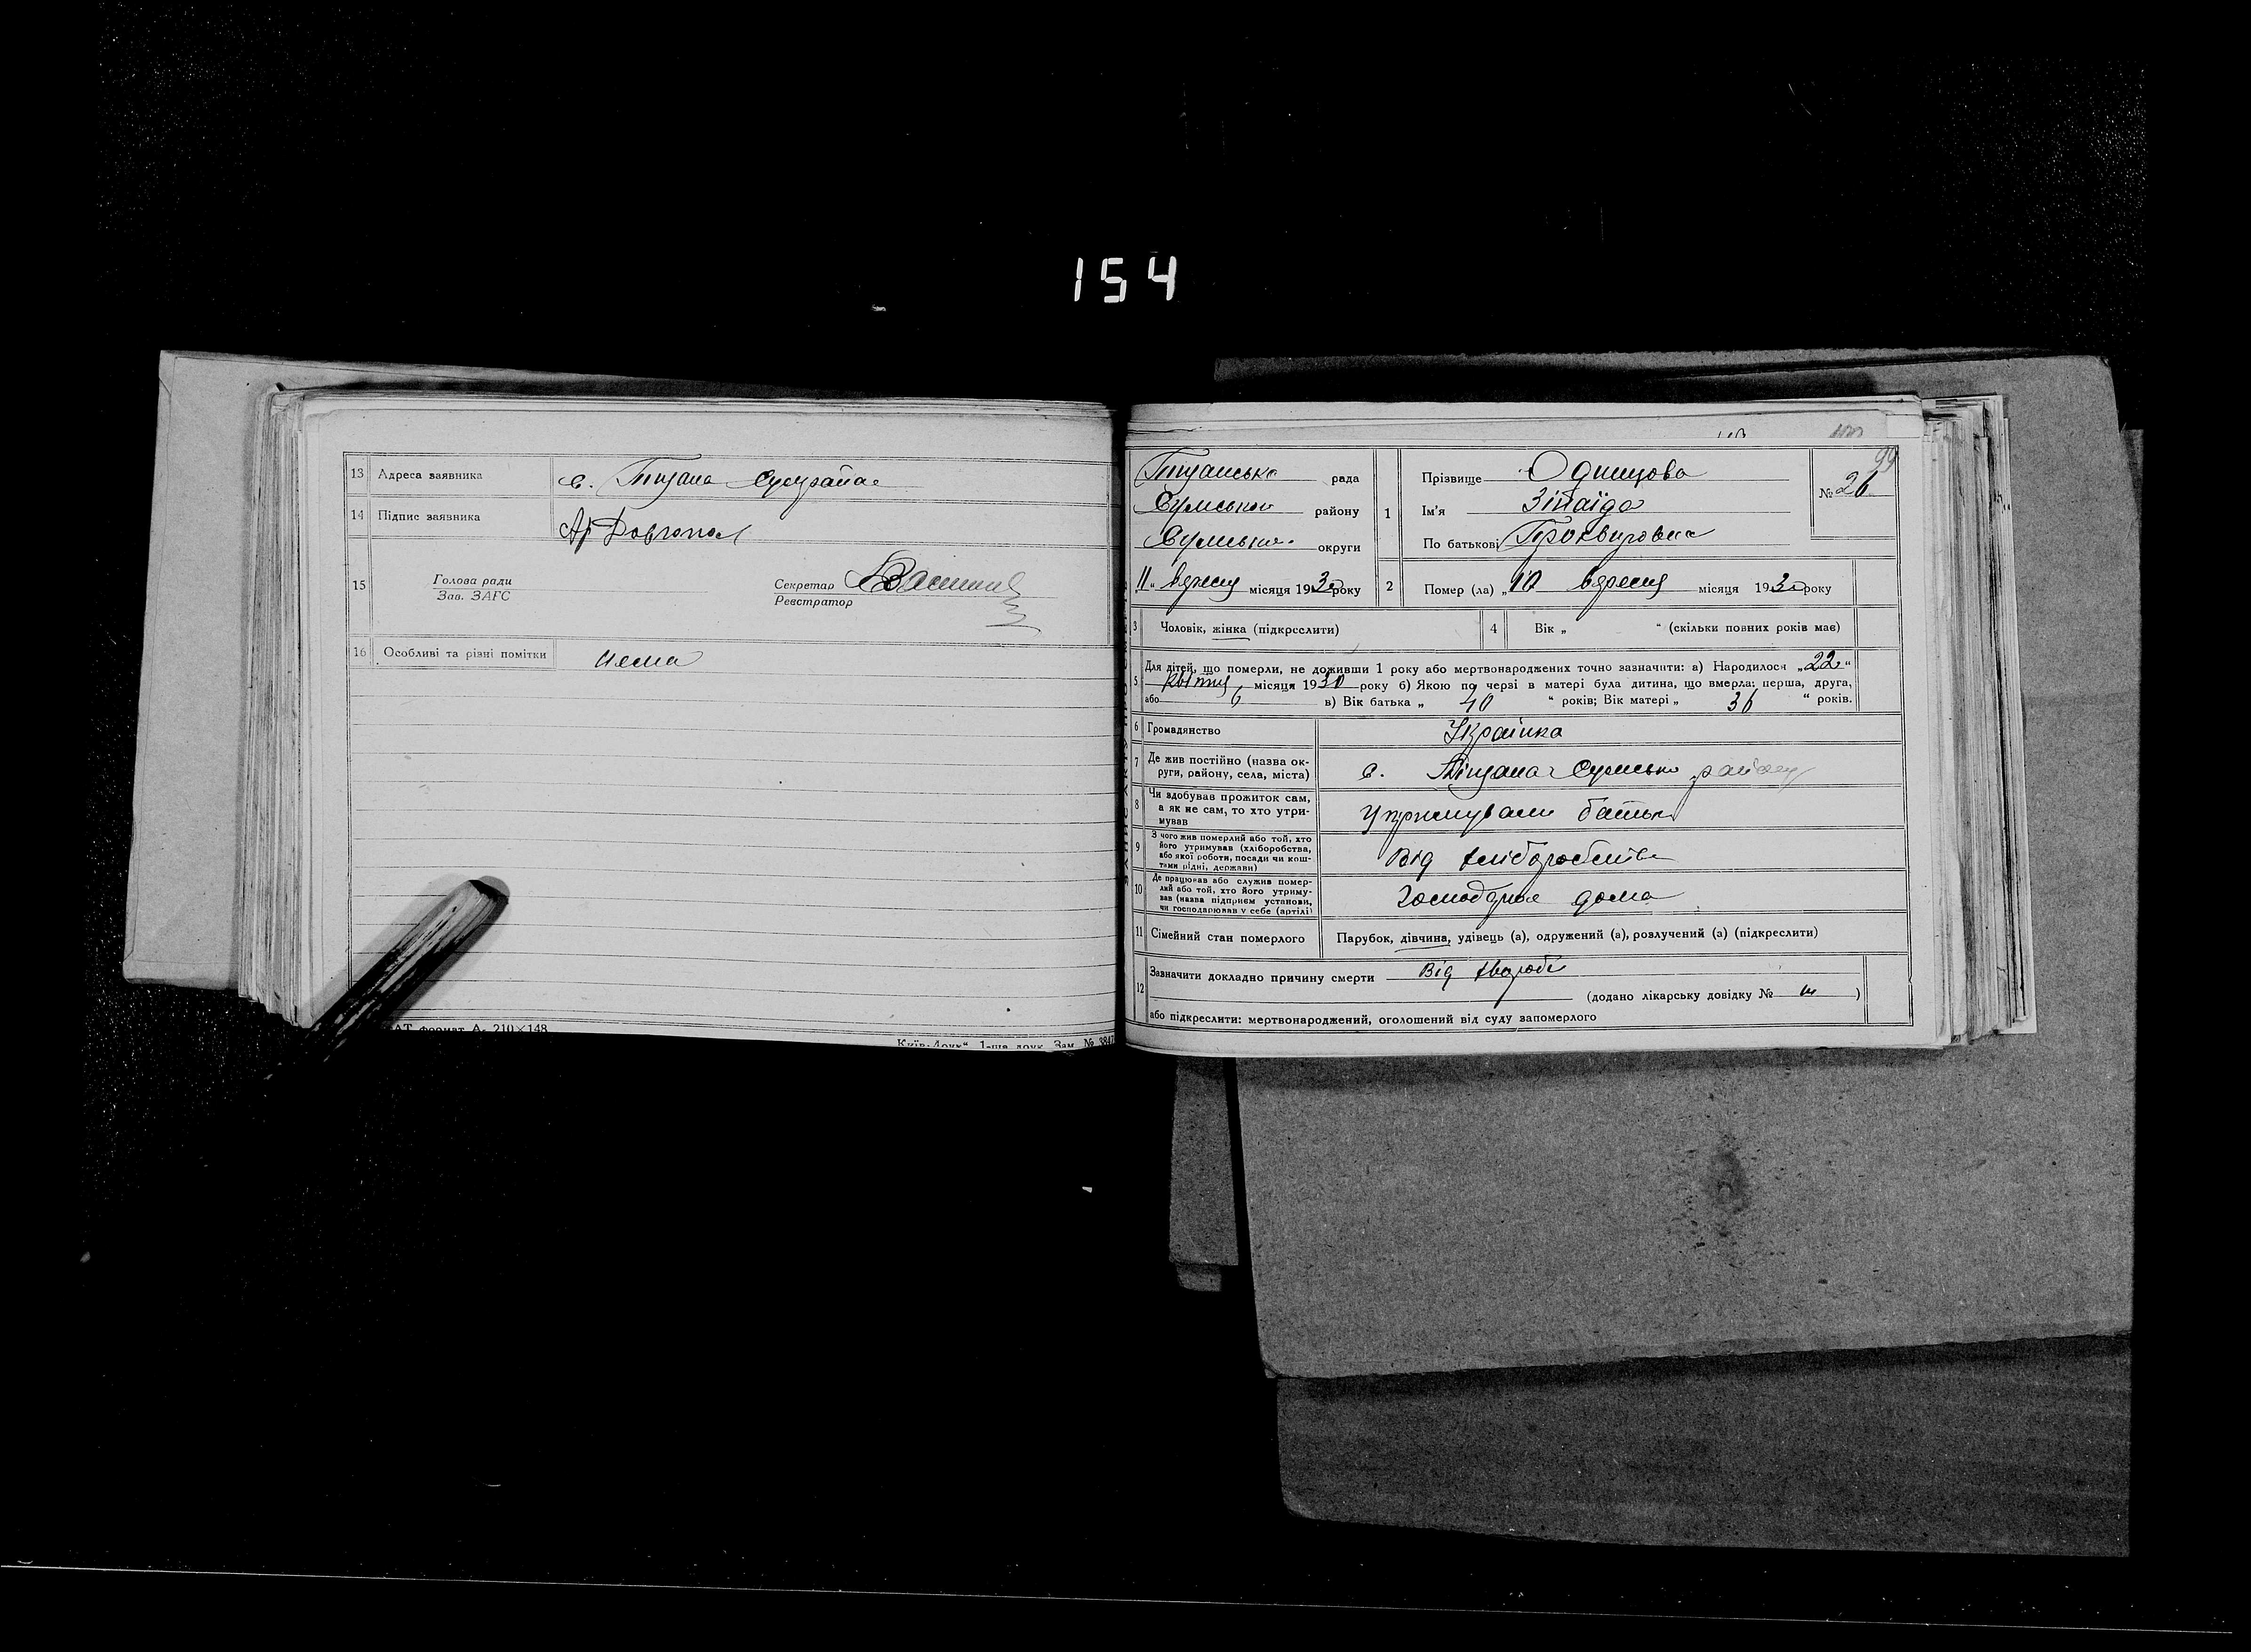 154
13 Адреса заявника с. Піщана Сумрайна
14 Підпис заявника Ар Довгопол
15 Голова ради
Зав. ЗАГС
Секретар
Реєстратор
16 Особливі та різні помітки нема
АТ формат А₅ 210×148
Київ-Друк“ 1-ша друк. Зам. № 3847
99
Піщанська рада
Сумської району
Сумської округи
„11„ вересня місяця 1930 року
1 Прізвище Одинцова
Ім'я Зінаїда
По батькові
№ 26
2 Помер (ла) „10 вересня місяця 1930 року
3 Чоловік, жінка (підкреслити)
4 Вік „ “ (скільки повних років має)
5 Для дітей, що померли, не доживши 1 року або мертвонароджених точно зазначити: а) Народилося „22“
квітня місяця 1930 року б) Якою по черзі в матері була дитина, що вмерла: перша, друга,
або 6 в) Вік батька „ 40 “ років; Вік матері „ 36 “ років.
6 Громадянство Українка
7 Де жив постійно (назва округи, району, села, міста) с. Піщана Сумсько району
8 Чи здобував прожиток сам,
а як не сам, то хто утри-
мував Утримували батьки
9 З чого жив померлий або той, хто
його утримував (хліборобства,
або якої роботи, посади чи кош-
тами рідні, держави) Від хліборобства
10 Де працював або служив помер-
лий або той, хто його утриму-
вав (назва підприєм установи,
чи господарював у себе (артілі) дома
11 Сімейний стан померлого Парубок, дівчина, удівець (а), одружений (а), розлучений (а) (підкреслити)
12 Зазначити докладно причину смерти Від хвороби
(додано лікарську довідку № )
або підкреслити: мертвонароджений, оголошений від суду запомерлого